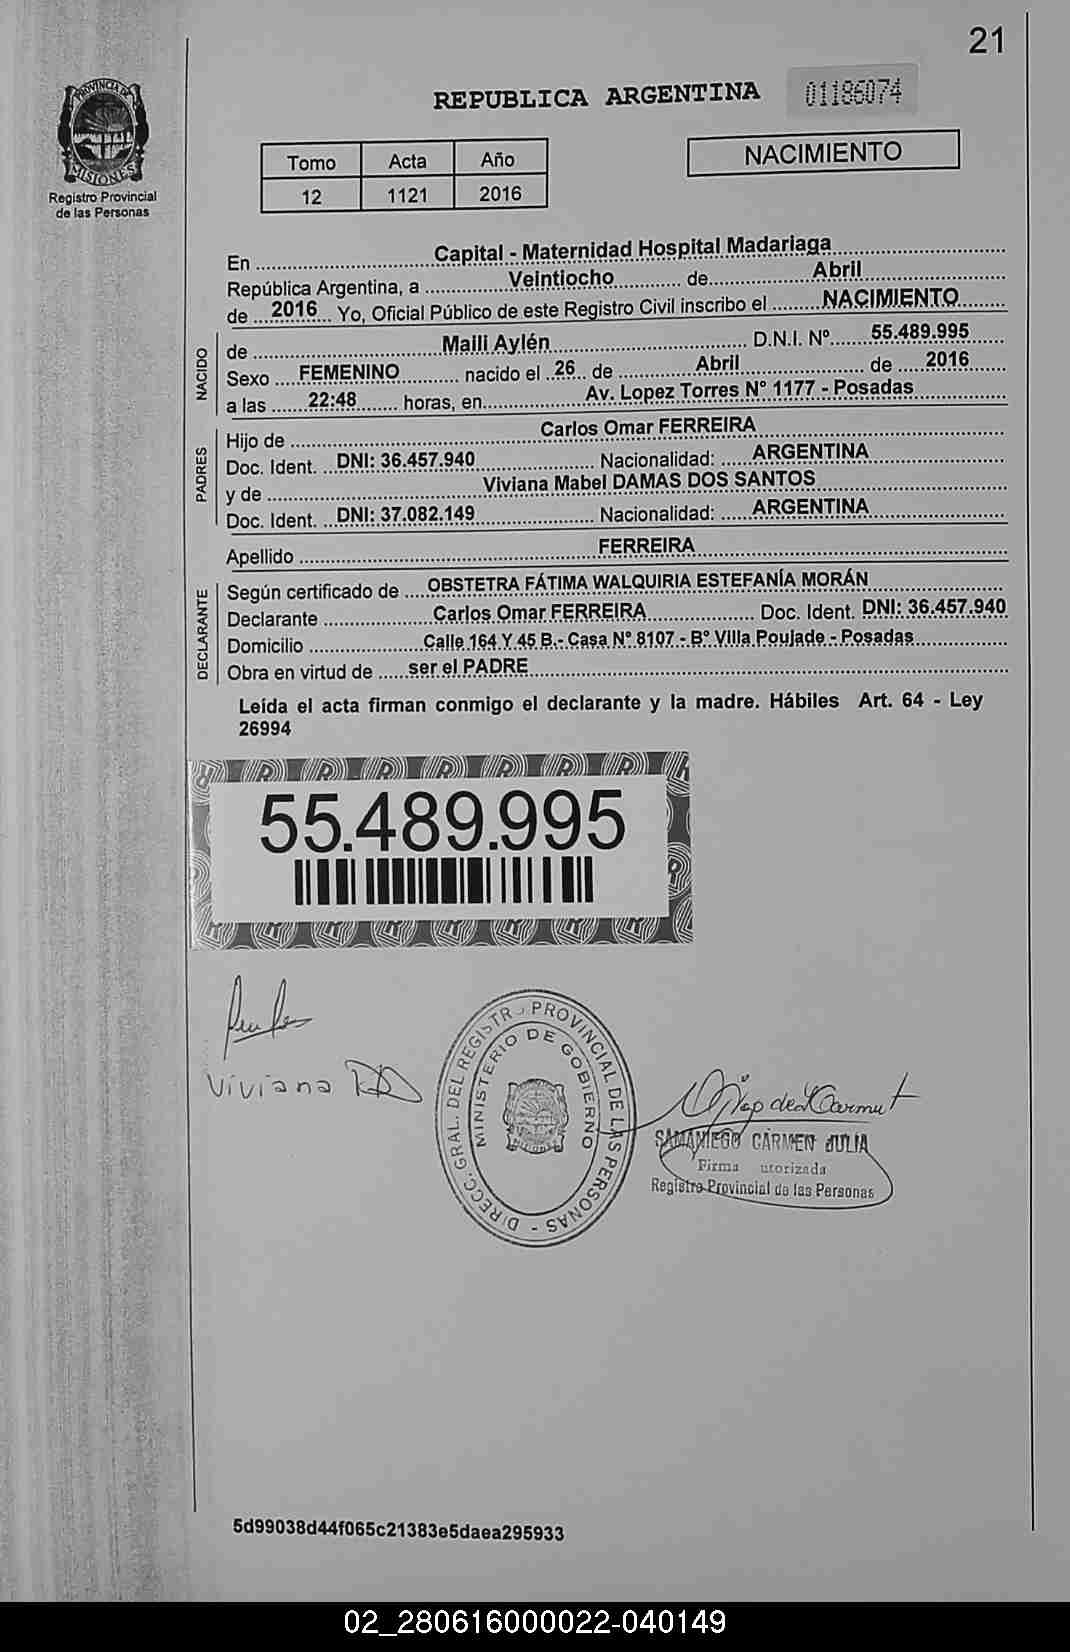 21
PROVINCIA DE
MISIONES
Registro Provincial
de las Personas
REPUBLICA ARGENTINA
01186074
Tomo Acta Año
12 1121 2016
NACIMIENTO
En Capital - Maternidad Hospital Madariaga
República Argentina, a Veintiocho de Abril
de 2016 Yo, Oficial Público de este Registro Civil inscribo el NACIMIENTO
NACIDO
de Maili Aylén D.N.I. Nº 55.489.995
Sexo FEMENINO nacido el 26 de Abril de 2016
a las 22:48 horas, en Av. Lopez Torres N° 1177 - Posadas
PADRES
Hijo de Carlos Omar FERREIRA
Doc. Ident. DNI: 36.457.940 Nacionalidad: ARGENTINA
y de Viviana Mabel DAMAS DOS SANTOS
Doc. Ident. DNI: 37.082.149 Nacionalidad: ARGENTINA
Apellido FERREIRA
DECLARANTE
Según certificado de OBSTETRA FÁTIMA WALQUIRIA ESTEFANÍA MORÁN
Declarante Carlos Omar FERREIRA Doc. Ident. DNI: 36.457.940
Domicilio Calle 164 Y 45 B.- Casa N° 8107 - B° Villa Poujade - Posadas
Obra en virtud de ser el PADRE
Leída el acta firman conmigo el declarante y la madre. Hábiles Art. 64 - Ley
26994
55.489.995
Viviana
DIRECC. GRAL. DEL REGISTRO PROVINCIAL DE LAS PERSONAS -
MINISTERIO DE GOBIERNO
SAMANIEGO CARMEN JULIA
Firma utorizada
Registro Provincial de las Personas
5d99038d44f065c21383e5daea295933
02_280616000022-040149